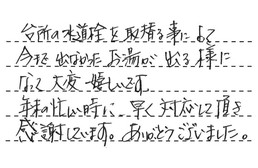 台所の水道栓を取替る事によって
今まで出なかったお湯が出る様に
なって大変嬉しいです。
年末の忙い時に、早く対応して頂き
感謝しています。ありがとうございました。